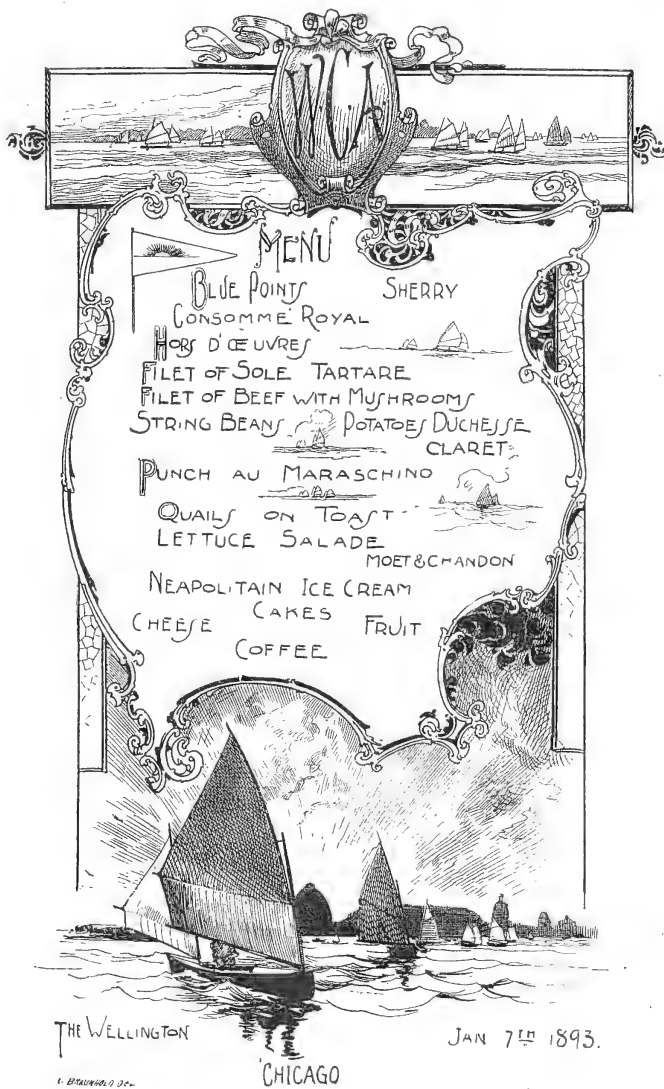 WCA
MENU
BLUE POINTS SHERRY
CONSOMMÉ ROYAL
HORS D'ŒUVRES
FILET OF SOLE TARTARE
FILET OF BEEF WITH MUSHROOMS
STRING BEANS POTATOES DUCHESSE
CLARET
PUNCH AU MARASCHINO
QUAILS ON TOAST
LETTUCE SALADE
MOET & CHANDON
NEAPOLITAIN ICE CREAM
CAKES
CHEESE FRUIT
COFFEE
THE WELLINGTON JAN 7TH 1893.
CHICAGO